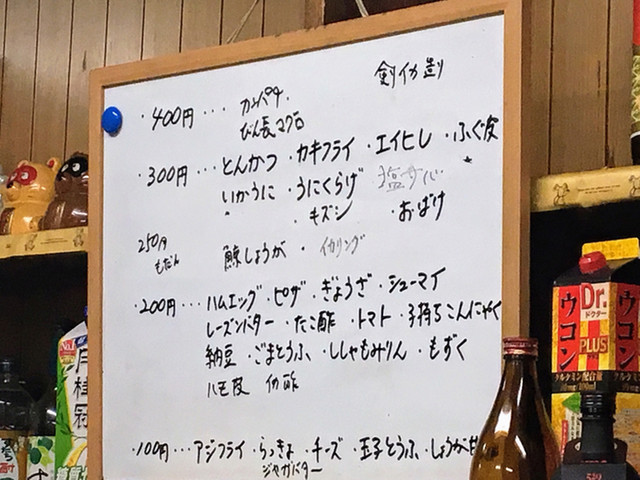 剣イカ造り
・400円・・・カンパチ・
びん長マグロ
・300円・・・とんかつ・カキフライ・エイヒレ・ふぐ皮
いかうに・うにくらげ 塩サバ
・キズシ ・おばけ
250円
もだん
鯨しょうが・イカリング
・200円・・・ハムエッグ・ピザ・ぎょうざ・シューマイ
レーズンバター・たこ酢・トマト・子持ちこんにゃく
納豆・ごまとうふ・ししゃもみりん・もずく
ハモ皮 イカ酢
・100円・・・アジフライ・らっきょ・チーズ・玉子とうふ・しょうが
ジャガバター
月桂冠
Dr.
ドクター
PLUS
ウコン
ウコン